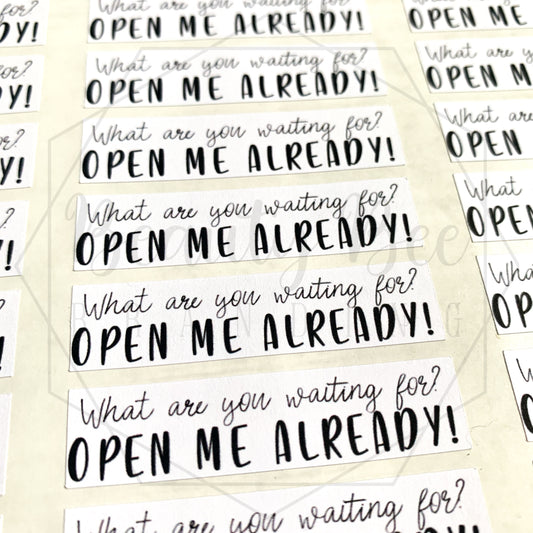 for?
DY!
for?
Y!
?
Y!
?
!
What are you waiting for?
OPEN ME ALREADY!
What are you waiting for?
OPEN ME ALREADY!
What are you waiting for?
OPEN ME ALREADY!
What are you waiting for?
OPEN ME ALREADY!
What are you waiting for?
OPEN ME ALREADY!
What are you waiting for?
OPEN ME ALREADY!
What are you waiting for?
OPEN ME
What are
OPEN M
What are
OPEN
What
OPEN
Wha
OP
Beauty Bee
BRANDING